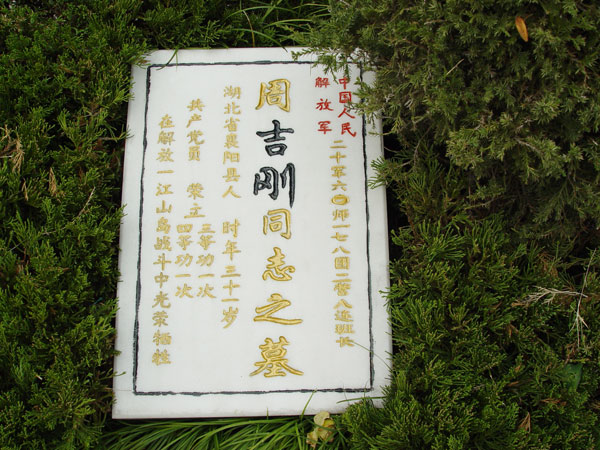 中国人民
解放军
二十军六〇师一七八团二营八连班长
周吉刚同志之墓
湖北省襄阳县人 时年三十一岁
共产党员 荣立
三等功一次
四等功一次
在解放一江山岛战斗中光荣牺牲